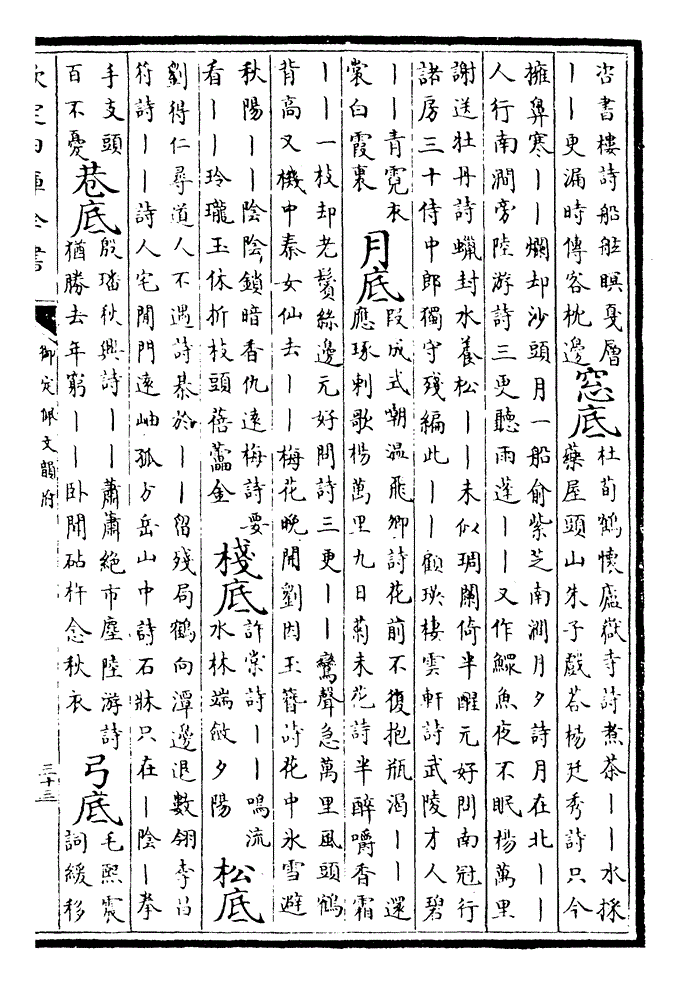 咨書樓詩船舷瞑戛層
丨丨更漏時傳客枕邊
窓底
杜荀鶴懷廬嶽寺詩煮茶丨丨水採
藥屋頭山朱子戲荅楊廷秀詩只今
擁鼻寒丨丨爛却沙頭月一船俞紫芝南澗月夕詩月在北丨丨
人行南澗旁陸游詩三更聽雨蓬丨丨又作鰥魚夜不眠楊萬里
謝送牡丹詩蠟封水養松丨丨未似琱闌倚半醒元好問南冠行
諸房三十侍中郎獨守殘編此丨丨顧瑛棲雲軒詩武陵才人碧
丨丨青霓衣
裳白霞裏
月底
段成式嘲温飛卿詩花前不復抱瓶渴丨丨還
應琢刺歌楊萬里九日菊未花詩半醉嚼香霜
丨丨一枝却老鬢絲邊元好問詩三更丨丨鸞聲急萬里風頭鶴
背高又機中秦女仙去丨丨梅花晚開劉因玉簪詩花中氷雪避
秋陽丨丨陰陰鎖暗香仇遠梅詩要
看丨丨玲瓏玉休折枝頭蓓蕾金
棧底
許棠詩丨丨鳴流
水林端斂夕陽
松底
劉得仁尋道人不遇詩棊於丨丨留殘局鶴向潭邊退數翎李昌
符詩丨丨詩人宅閒門遠岫孤方岳山中詩石牀只在丨陰丨拳
手支頭
百不憂
巷底
殷璠秋興詩丨丨蕭蕭絶市塵陸游詩
猶勝去年窮丨丨卧聞砧杵念秋衣
弓底
毛熙震
詞緩移
欽定四庫全書
御定佩文韻府
三十三